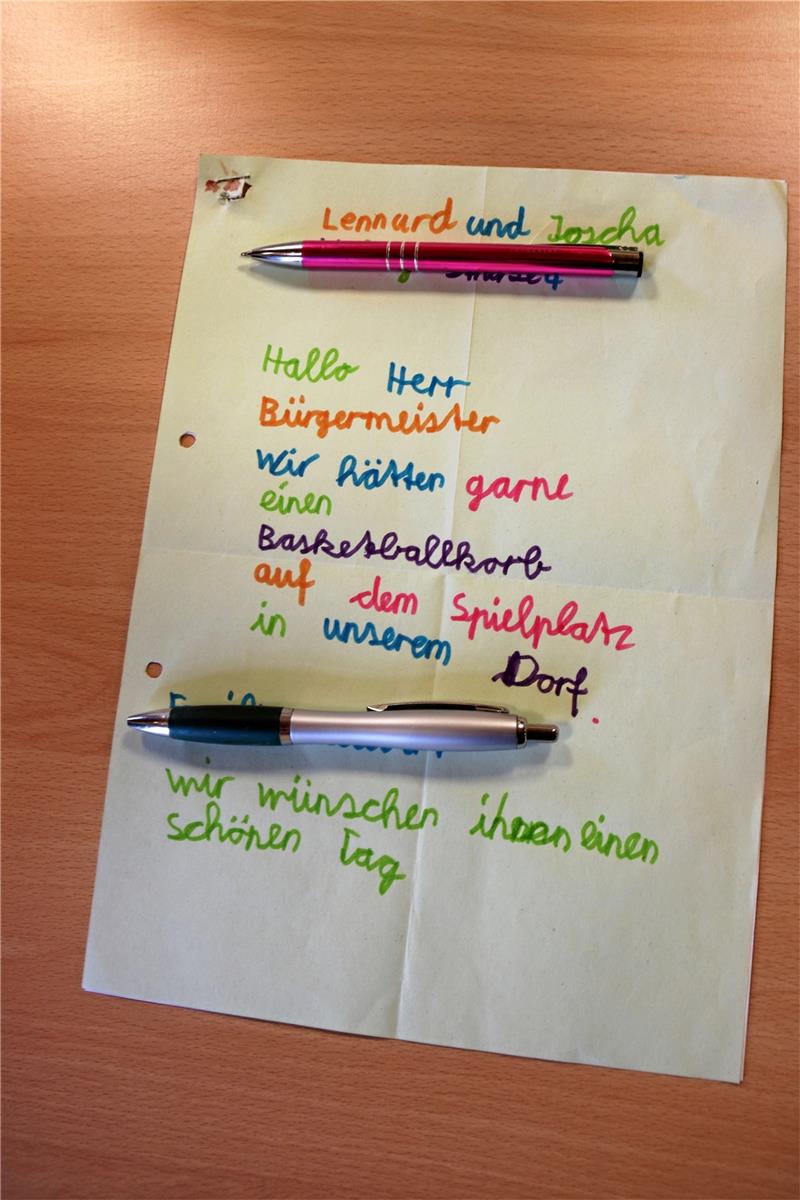 Lennard und Joscha
Hallo Herr
Bürgermeister
wir hätten garne
einen
Basketballkorb
auf dem Spielplatz
in unserem Dorf.
wir wünschen ihnen einen
schönen Tag